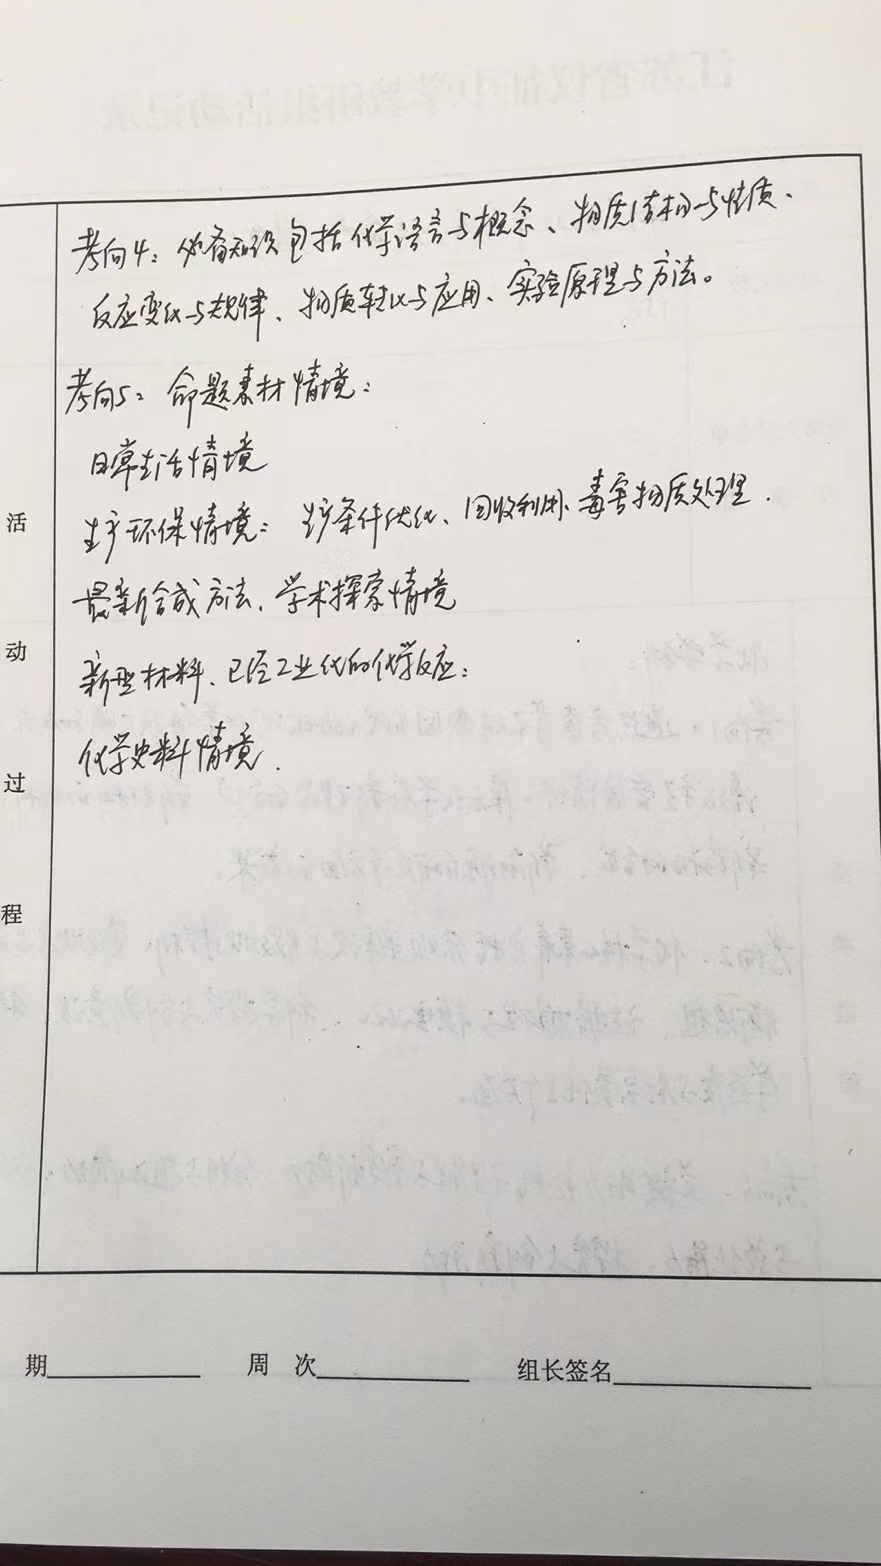 考向4：必备知识包括化学语言与概念、物质结构与性质、
反应变化与规律、物质转化与应用、实验原理与方法。
考向5：命题素材情境：
日常生活情境
生产环保情境：生产条件优化、回收利用、毒害物质处理.
最新合成方法、学术探索情境
新型材料、已经工业化的化学反应；
化学史料情境.
活
动
过
程
期 周 次 组长签名